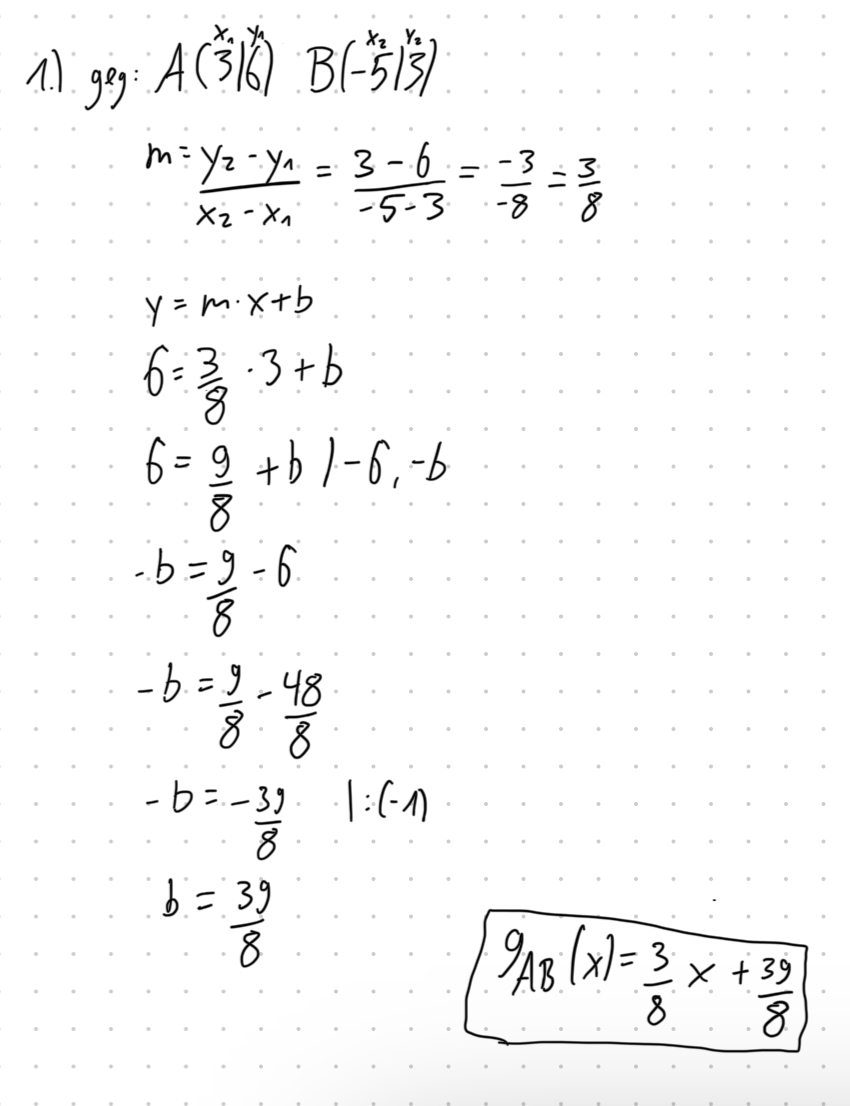 1.) geg: A(3|6) B(-5|3)
x₁ y₁ x₂ y₂
m = y₂ - y₁ / x₂ - x₁ = 3 - 6 / -5 - 3 = -3 / -8 = 3/8
y = m · x + b
6 = 3/8 · 3 + b
6 = 9/8 + b | -6, -b
-b = 9/8 - 6
-b = 9/8 - 48/8
-b = -39/8 | :(-1)
b = 39/8
g_AB (x) = 3/8 x + 39/8